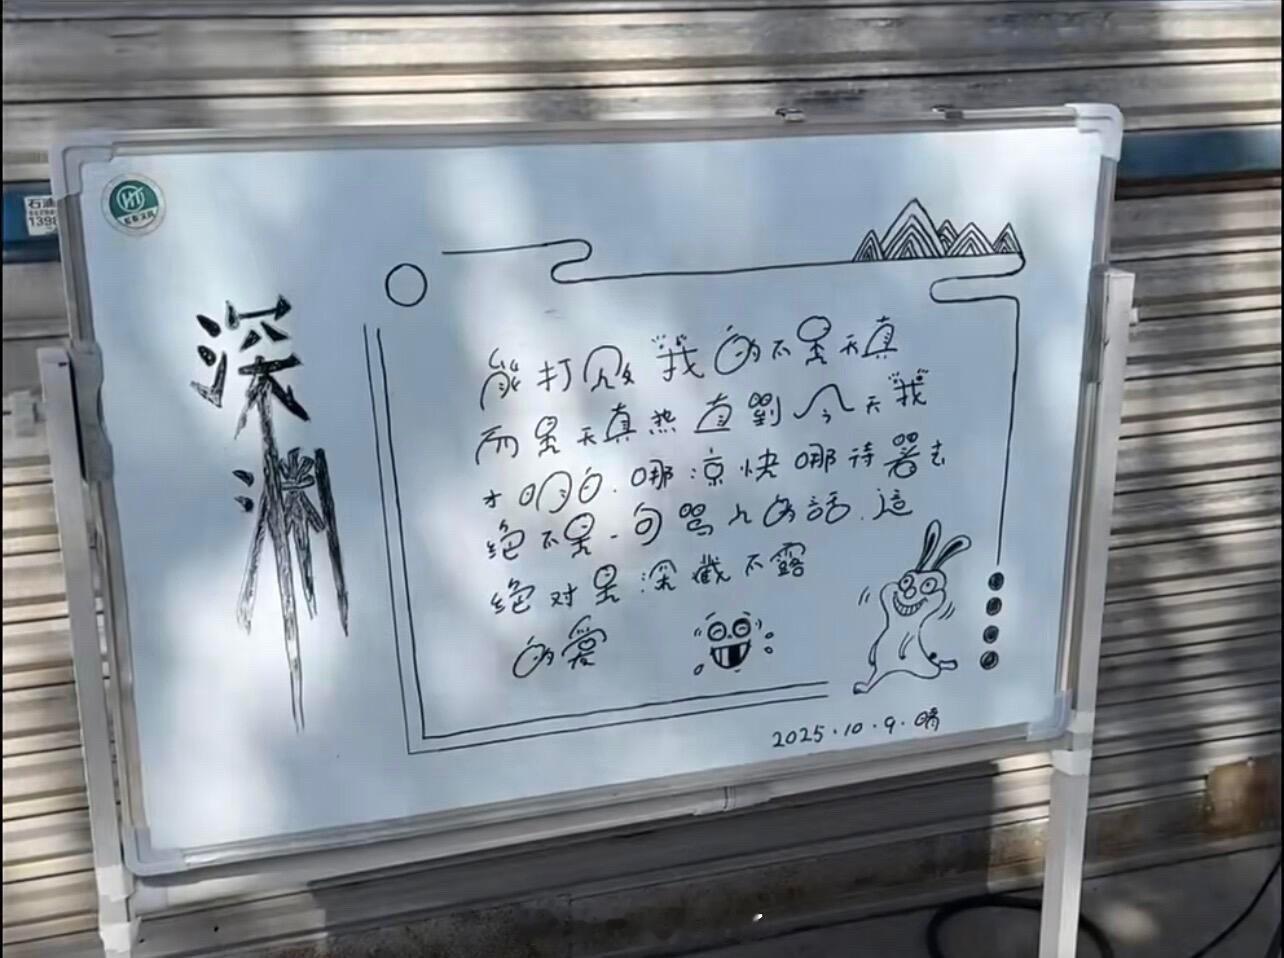 深渊
能打败我的不是天真
而是天真热直到今天我
才明白.哪凉快哪待著去
绝不是一句骂人的話.這
绝对是深藏不露
的爱
2025.10.9.晴
石油
1398